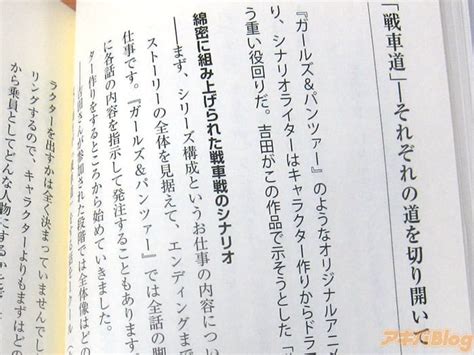 「戦車道」―それぞれの道を切り開い
『ガールズ&パンツァー』のようなオリジナルアニメ
り、シナリオライターはキャラクター作りからドラマ
う重い役回りだ。吉田がこの作品で示そうとした「
綿密に組み上げられた戦車戦のシナリオ
――まず、シリーズ構成というお仕事の内容につい
ストーリーの全体を見据えて、エンディングまで
仕事です。『ガールズ&パンツァー』では全話の脚
に各話の内容を指示して発注することもあります。
ター作りをするところから始めていきました。
――吉田さんが参加された段階では全体像はど
ラクターを出すかは全く決まっていませんでし
リングするので、キャラクターよりもまずはど
から乗員としてどんな人物にするか
アキバBlog